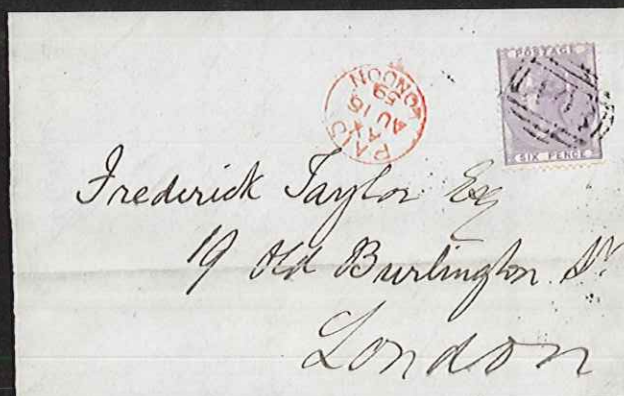 POSTAGE
SIX PENCE
LONDON
PAID
AU 16
59
Frederick Taylor Esq
19 Old Burlington St
London